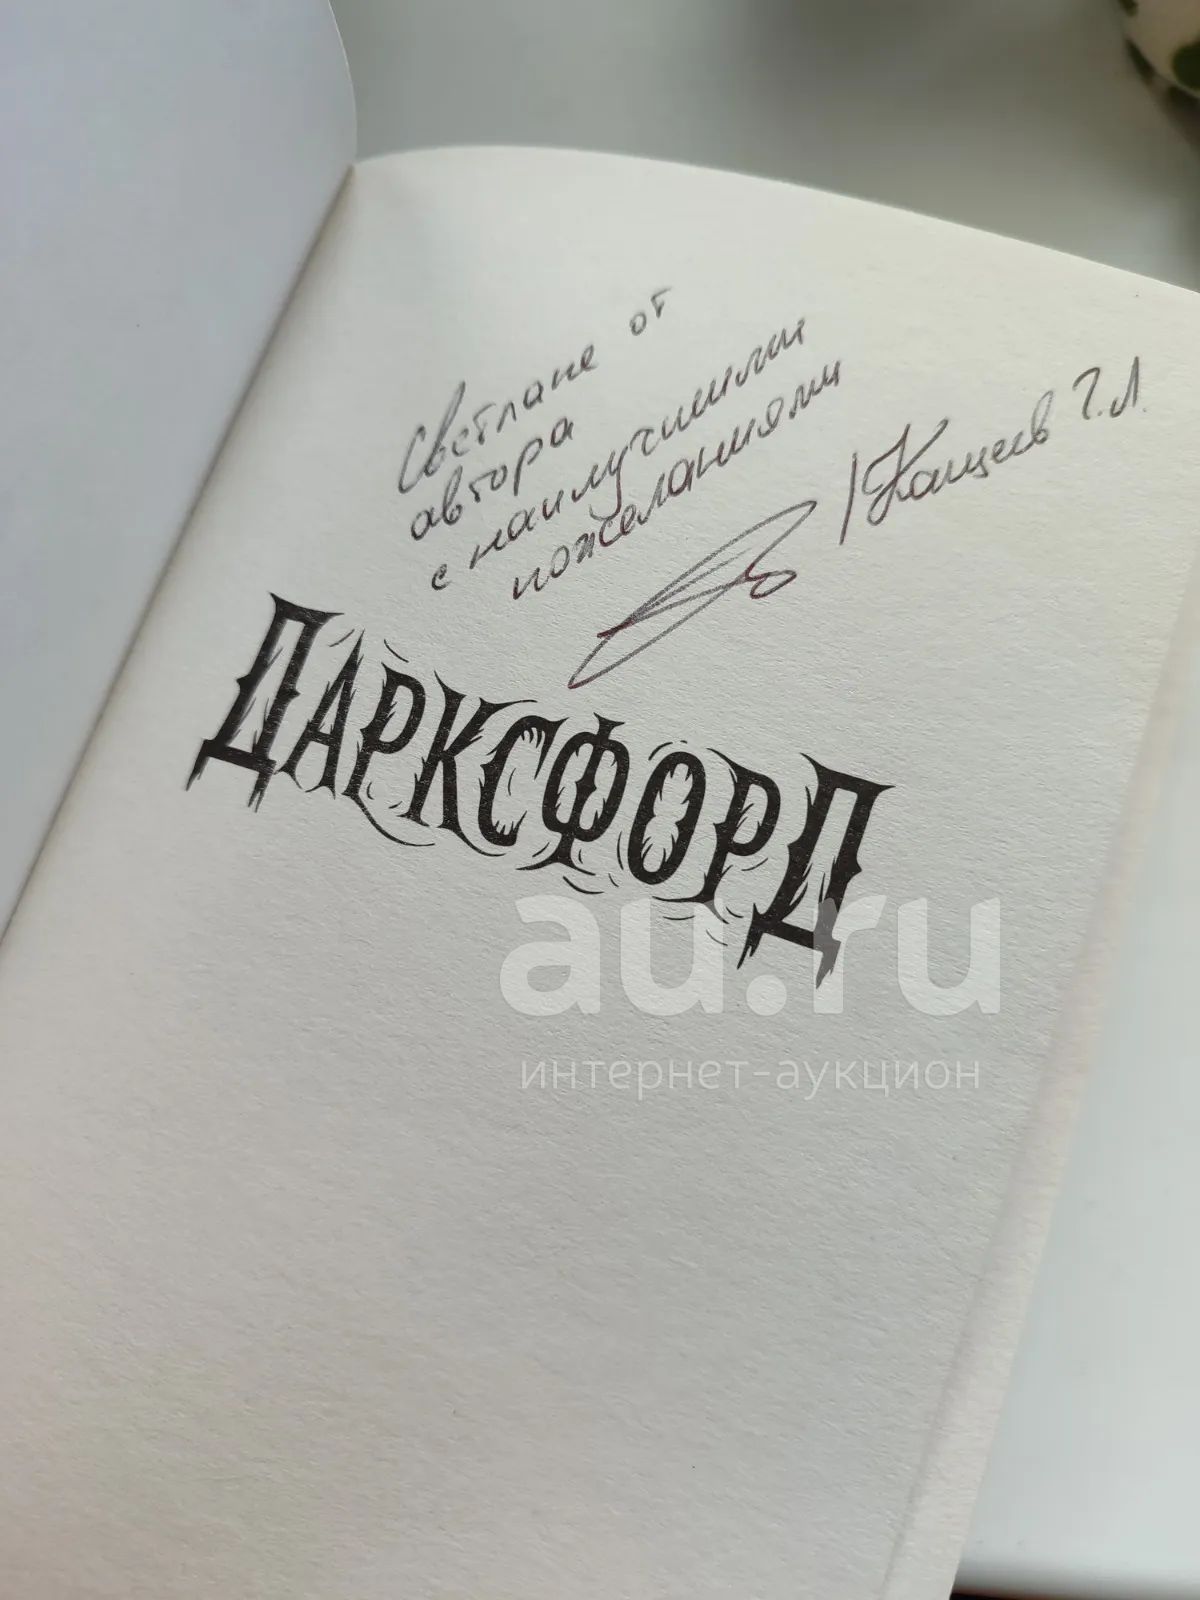 Светлане от
автора
с наилучшими
пожеланиями
/Кащеев Г.Л.
ДАРКСФОРД
au.ru
интернет-аукцион